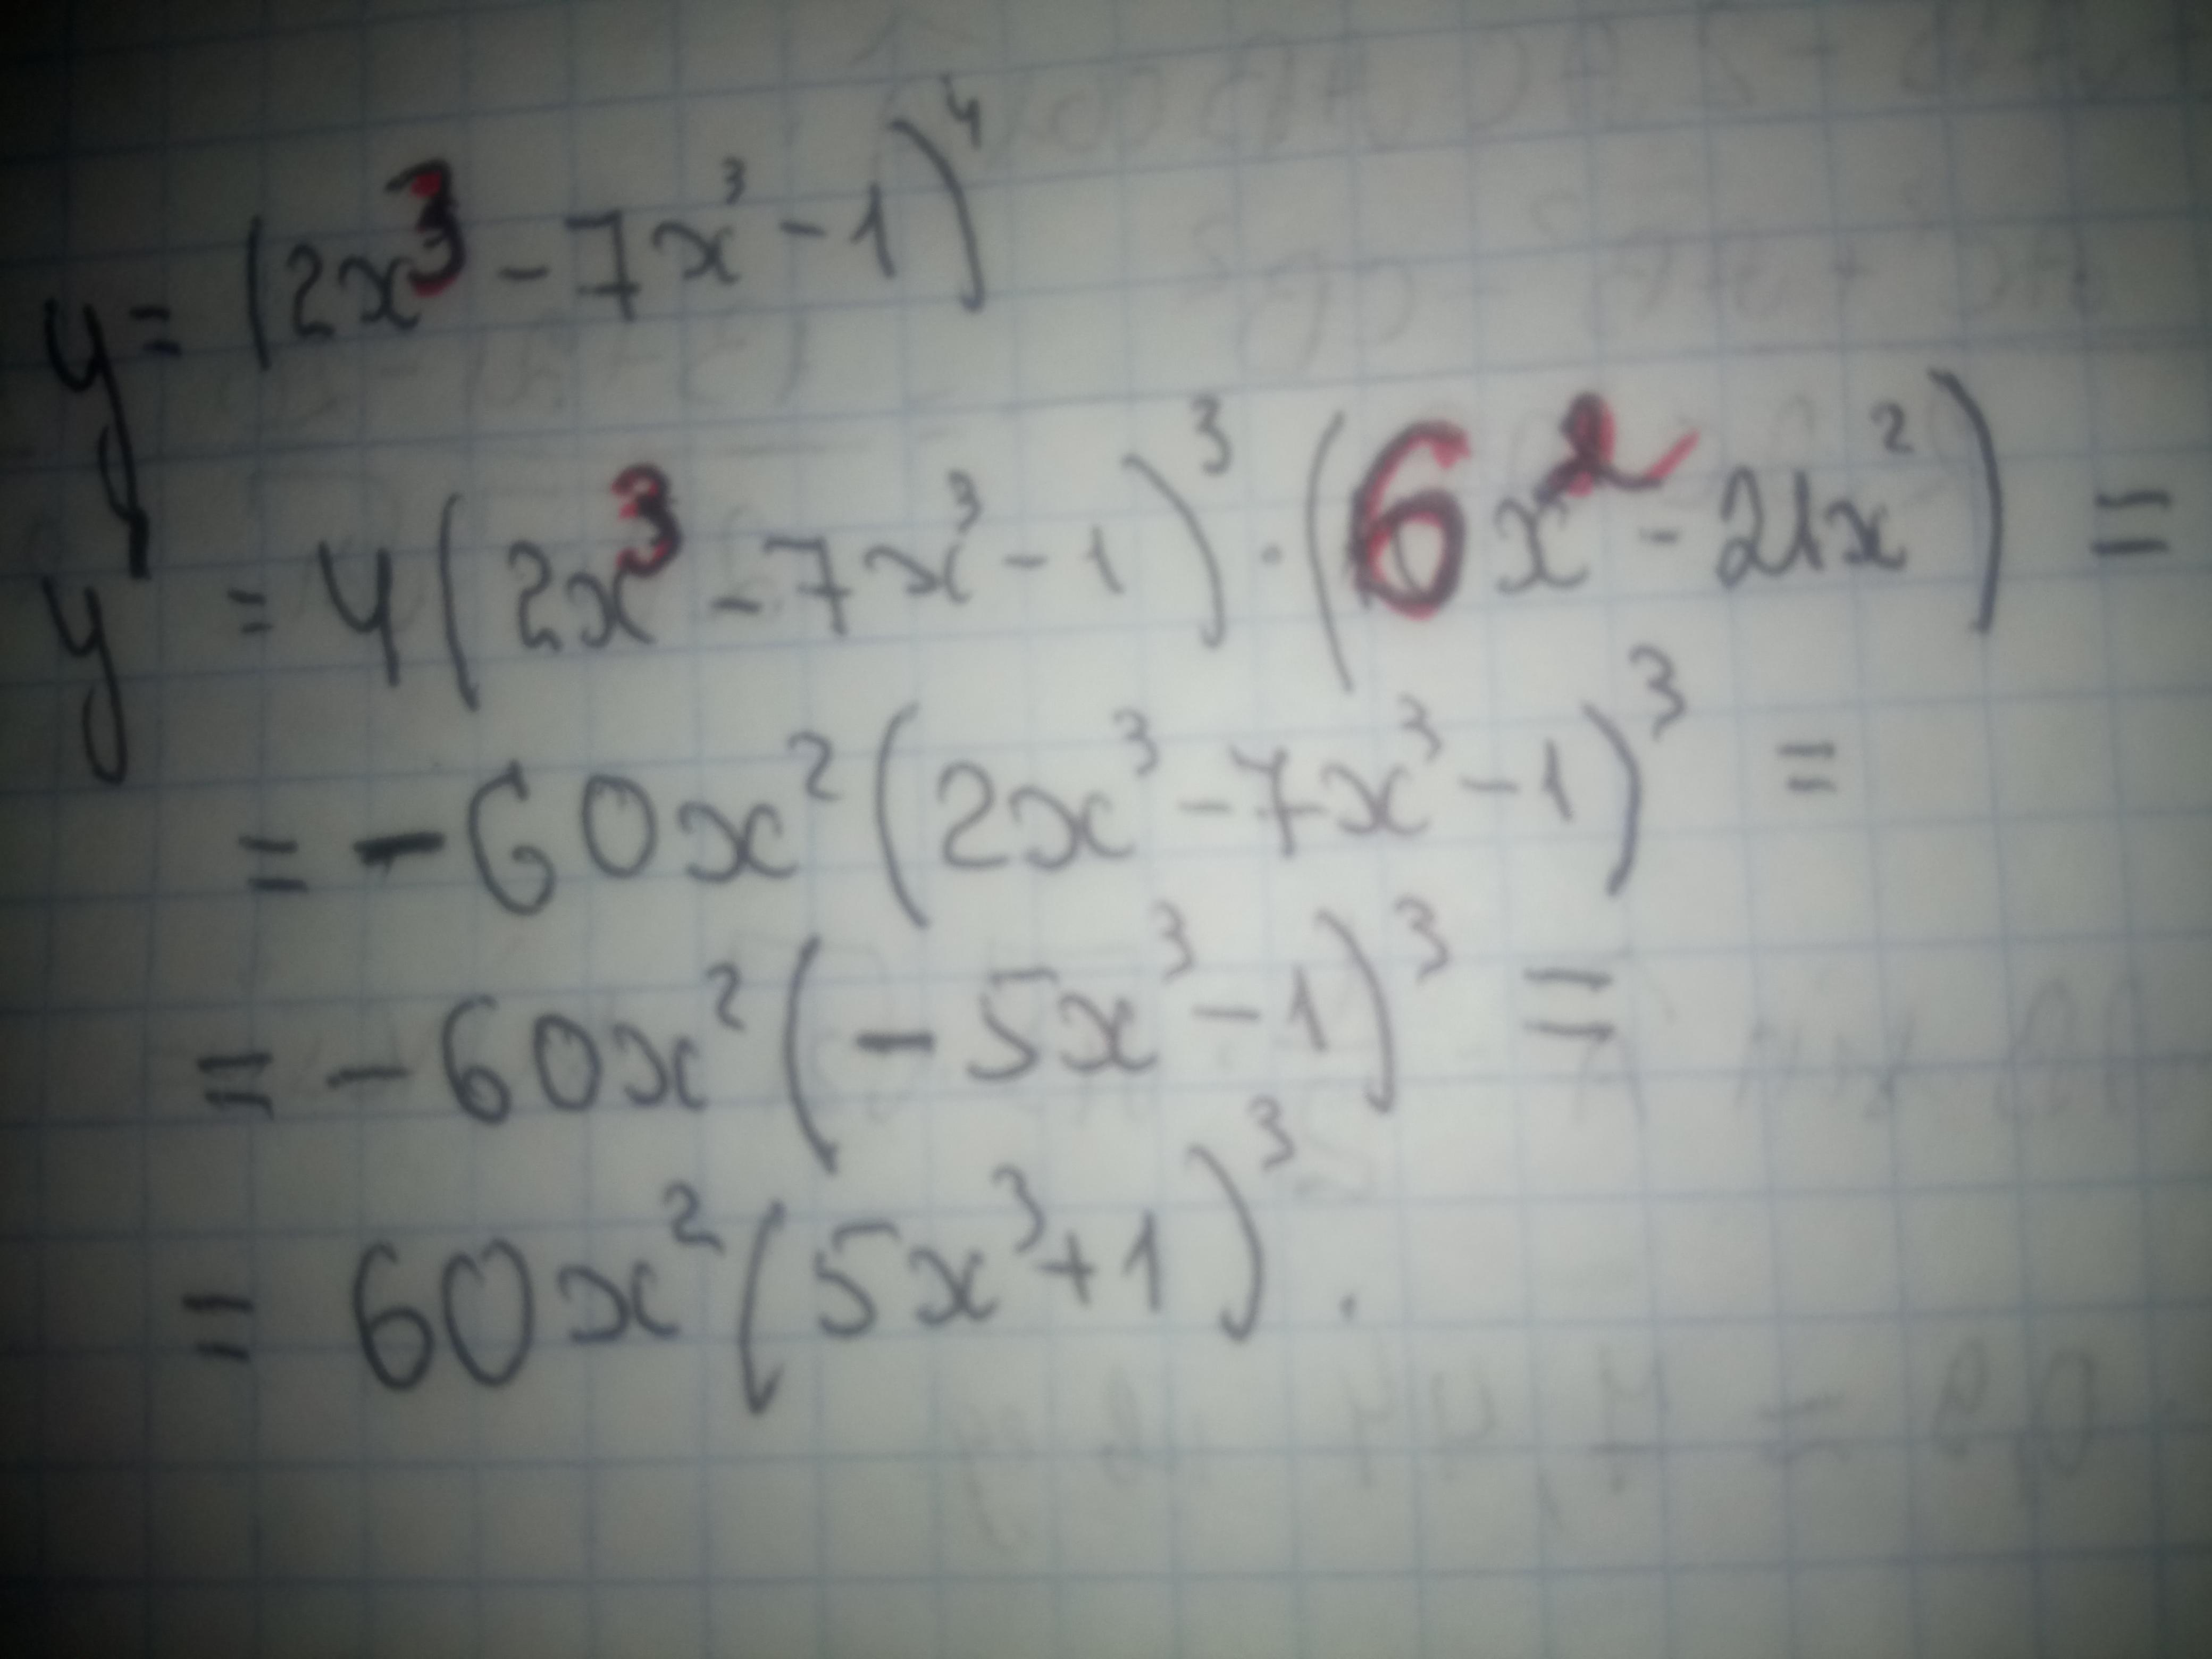 y = (2x³ - 7x³ - 1)⁴
y' = 4(2x³ - 7x³ - 1)³ · (6x² - 21x²) =
= - 60x² (2x³ - 7x³ - 1)³ =
= - 60x² (- 5x³ - 1)³ =
= 60x² (5x³ + 1)³.